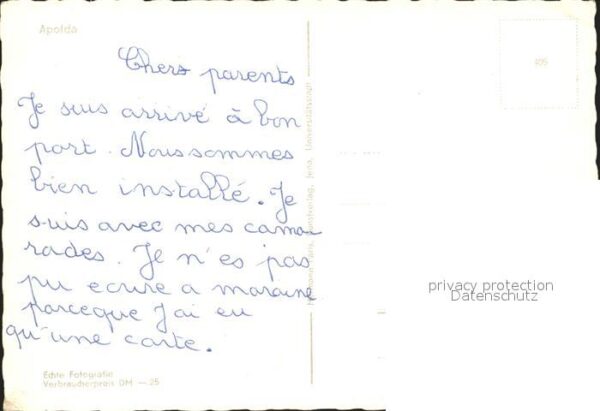 Apolda
Chers parents
Je suis arrivé à bon
port. Nous sommes
bien installé. Je
suis avec mes cama-
rades. Je n'es pas
pu ecrire a maraine
parceque J'ai eu
qu'une carte.
Echte Fotografie
Verbraucherpreis DM —25
privacy protection
Datenschutz